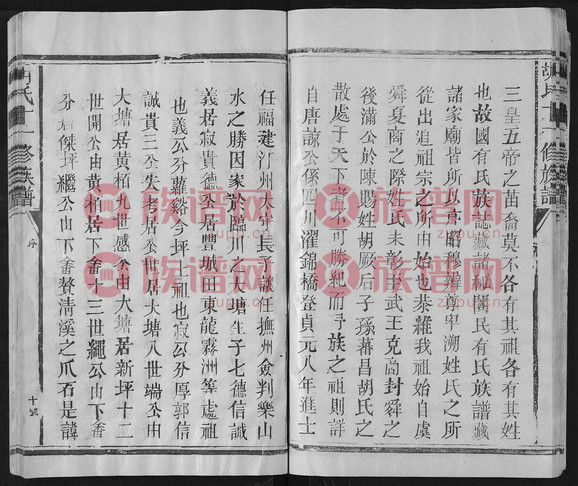 三皇五帝之苗裔莫不各有其祖各有其姓
也故國有民族誌藏諸秘閣民有氏族譜藏
諸家廟皆所以序昭穆辨尊卑溯姓氏之所
從出追祖宗之所由始也恭維我祖始自虞
舜夏商之際姓氏未彰後武王克商封舜之
後滿公於陳賜姓胡厥后子孫蕃昌胡氏之
散處于天下者不可勝紀而予族之祖則詳
自唐諒公係四川濯錦橋登貞元八年進士
任福建汀州太守長子議任撫州僉判樂山
水之勝因家於臨川之大塘生子七德信誠
義居寂貴德公居豐城田東龍霧洲等處祖
也義公分蘿谿今坪上祖也寂公分厚郭信
誠貴三公失考居公世居大塘八世端公由
大塘居黃栢九世感公由大塘居新坪十二
世開公由黃栢居下畬十三世繩公由下畬
分居傑坪繼公由下畬贅清溪之爪石是諱
胡氏十一修族譜
序
十號
胡氏十一修族譜
族谱网
zupu.cn